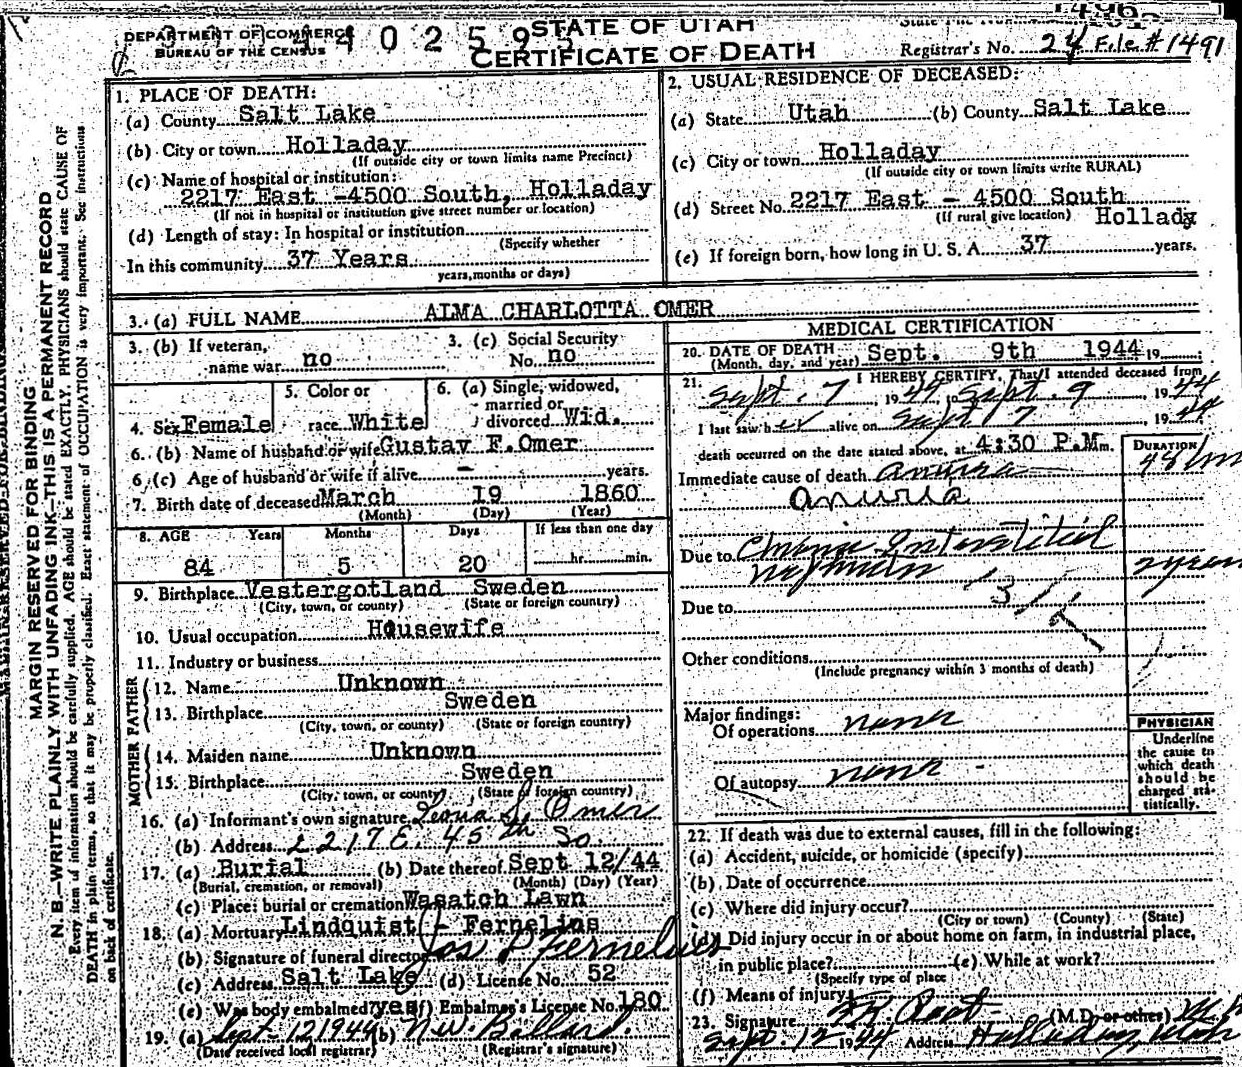 DEPARTMENT OF COMMERCE
BUREAU OF THE CENSUS
STATE OF UTAH
CERTIFICATE OF DEATH
Registrar's No. 24 File #1491
MARGIN RESERVED FOR BINDING
N. B.—WRITE PLAINLY WITH UNFADING INK—THIS IS A PERMANENT RECORD
Every item of information should be carefully supplied. AGE should be stated EXACTLY. PHYSICIANS should state CAUSE OF
DEATH in plain terms, so that it may be properly classified. Exact statement of OCCUPATION is very important. See instructions
on back of certificate.
1. PLACE OF DEATH:
(a) County Salt Lake
(b) City or town Holladay
(If outside city or town limits name Precinct)
(c) Name of hospital or institution:
2217 East -4500 South, Holladay
(If not in hospital or institution give street number or location)
(d) Length of stay: In hospital or institution
(Specify whether
In this community 37 Years
years, months or days)
2. USUAL RESIDENCE OF DECEASED:
(a) State Utah (b) County Salt Lake
(c) City or town Holladay
(If outside city or town limits write RURAL)
(d) Street No. 2217 East - 4500 South
(If rural give location) Holladay
(e) If foreign born, how long in U. S. A. 37 years.
3. (a) FULL NAME ALMA CHARLOTTA OMER
3. (b) If veteran, name war no
3. (c) Social Security No. no
4. Sex Female
5. Color or race White
6. (a) Single, widowed, married or divorced Wid.
6. (b) Name of husband or wife Gustav F. Omer
6. (c) Age of husband or wife if alive - years.
7. Birth date of deceased March 19 1860
(Month) (Day) (Year)
8. AGE Years Months Days If less than one day
84 5 20 hr. min.
9. Birthplace Vestergotland Sweden
(City, town, or county) (State or foreign country)
10. Usual occupation Housewife
11. Industry or business
FATHER
12. Name Unknown
13. Birthplace Sweden
(City, town, or county) (State or foreign country)
MOTHER
14. Maiden name Unknown
15. Birthplace Sweden
(City, town, or county) (State or foreign country)
16. (a) Informant's own signature Omer
(b) Address 2217 E. 45th So.
17. (a) Burial (b) Date thereof Sept 12/44
(Burial, cremation, or removal) (Month) (Day) (Year)
(c) Place: burial or cremation Wasatch Lawn
18. (a) Mortuary Lindquist - Fernelius
(b) Signature of funeral director Jos P Fernelius
(c) Address Salt Lake (d) License No. 52
(e) Was body embalmed? yes (f) Embalmer's License No. 180
19. (a) Sept. 12 1944 (b) N. W. Ballard.
(Date received local registrar) (Registrar's signature)
MEDICAL CERTIFICATION
20. DATE OF DEATH Sept. 9th 1944 19
(Month, day, and year)
21. I HEREBY CERTIFY, That I attended deceased from
Sept. 7, 1944, to Sept. 9, 1944
I last saw her alive on Sept 7, 1944
death occurred on the date stated above, at 4:30 P.M m.
DURATION
Immediate cause of death anuria 48 hrs
anuria
Due to Chronic Interstitial
nephritis 2 years
Due to
Other conditions
(Include pregnancy within 3 months of death)
Major findings:
Of operations none
Of autopsy none
PHYSICIAN
Underline
the cause to
which death
should be
charged sta-
tistically.
22. If death was due to external causes, fill in the following:
(a) Accident, suicide, or homicide (specify)
(b) Date of occurrence
(c) Where did injury occur?
(City or town) (County) (State)
(d) Did injury occur in or about home on farm, in industrial place,
in public place? (e) While at work?
(Specify type of place
(f) Means of injury
23. Signature (M.D. or other) M.D.
Sept. 12 1944 Address Holladay, Utah